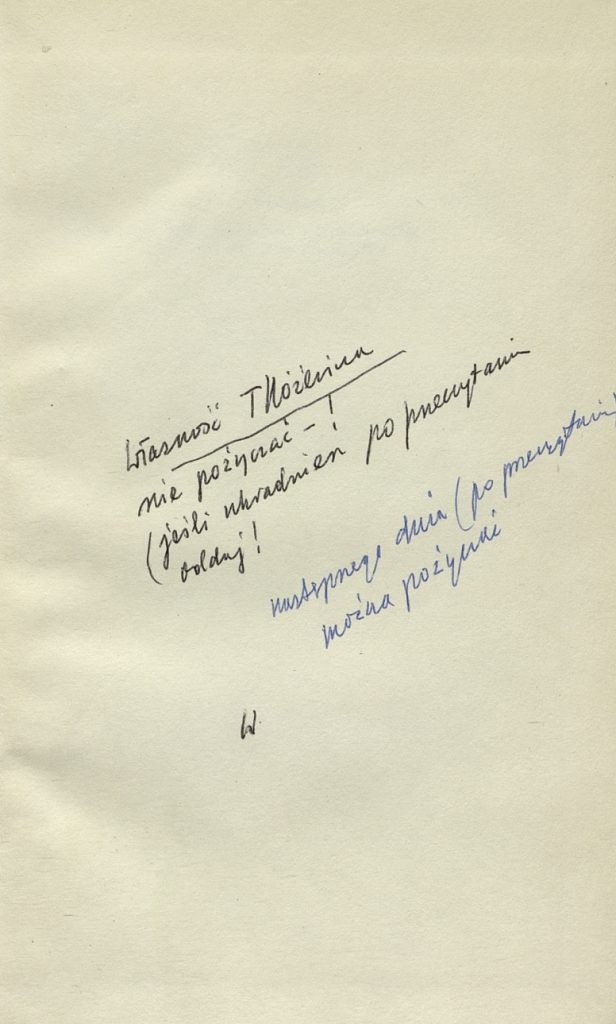 Własność T Różewicza
nie pożyczać - !
(jeśli ukradniesz po przeczytaniu
oddaj!
następnego dnia (po przeczytaniu)
można pożyczać
W